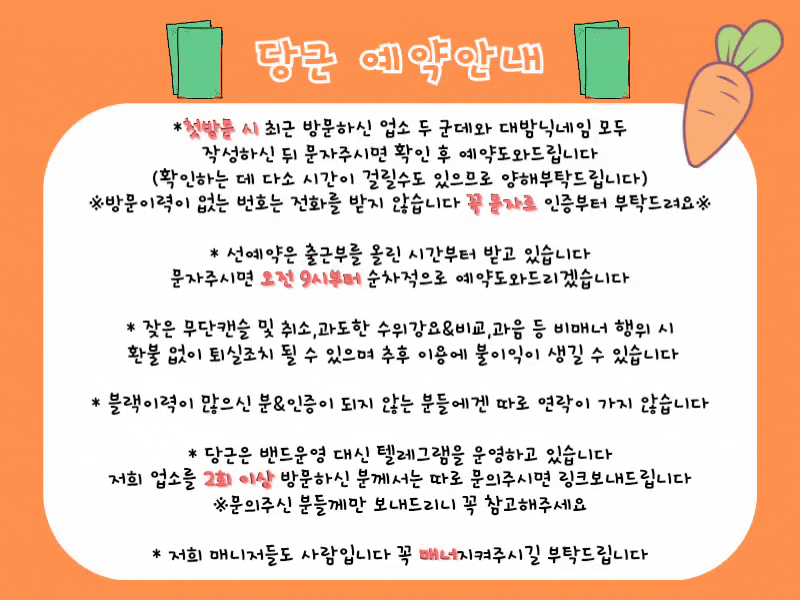 당근 예약안내
*첫방문 시 최근 방문하신 업소 두 군데와 대밤닉네임 모두
작성하신 뒤 문자주시면 확인 후 예약도와드립니다
(확인하는 데 다소 시간이 걸릴수도 있으므로 양해부탁드립니다)
※방문이력이 없는 번호는 전화를 받지 않습니다 꼭 문자로 인증부터 부탁드려요※
* 선예약은 출근부를 올린 시간부터 받고 있습니다
문자주시면 오전 9시부터 순차적으로 예약도와드리겠습니다
* 잦은 무단캔슬 및 취소,과도한 수위강요&비교,과음 등 비매너 행위 시
환불 없이 퇴실조치 될 수 있으며 추후 이용에 불이익이 생길 수 있습니다
* 블랙이력이 많으신 분&인증이 되지 않는 분들에겐 따로 연락이 가지 않습니다
* 당근은 밴드운영 대신 텔레그램을 운영하고 있습니다
저희 업소를 2회 이상 방문하신 분께서는 따로 문의주시면 링크보내드립니다
※문의주신 분들께만 보내드리니 꼭 참고해주세요
* 저희 매니저들도 사람입니다 꼭 매너지켜주시길 부탁드립니다